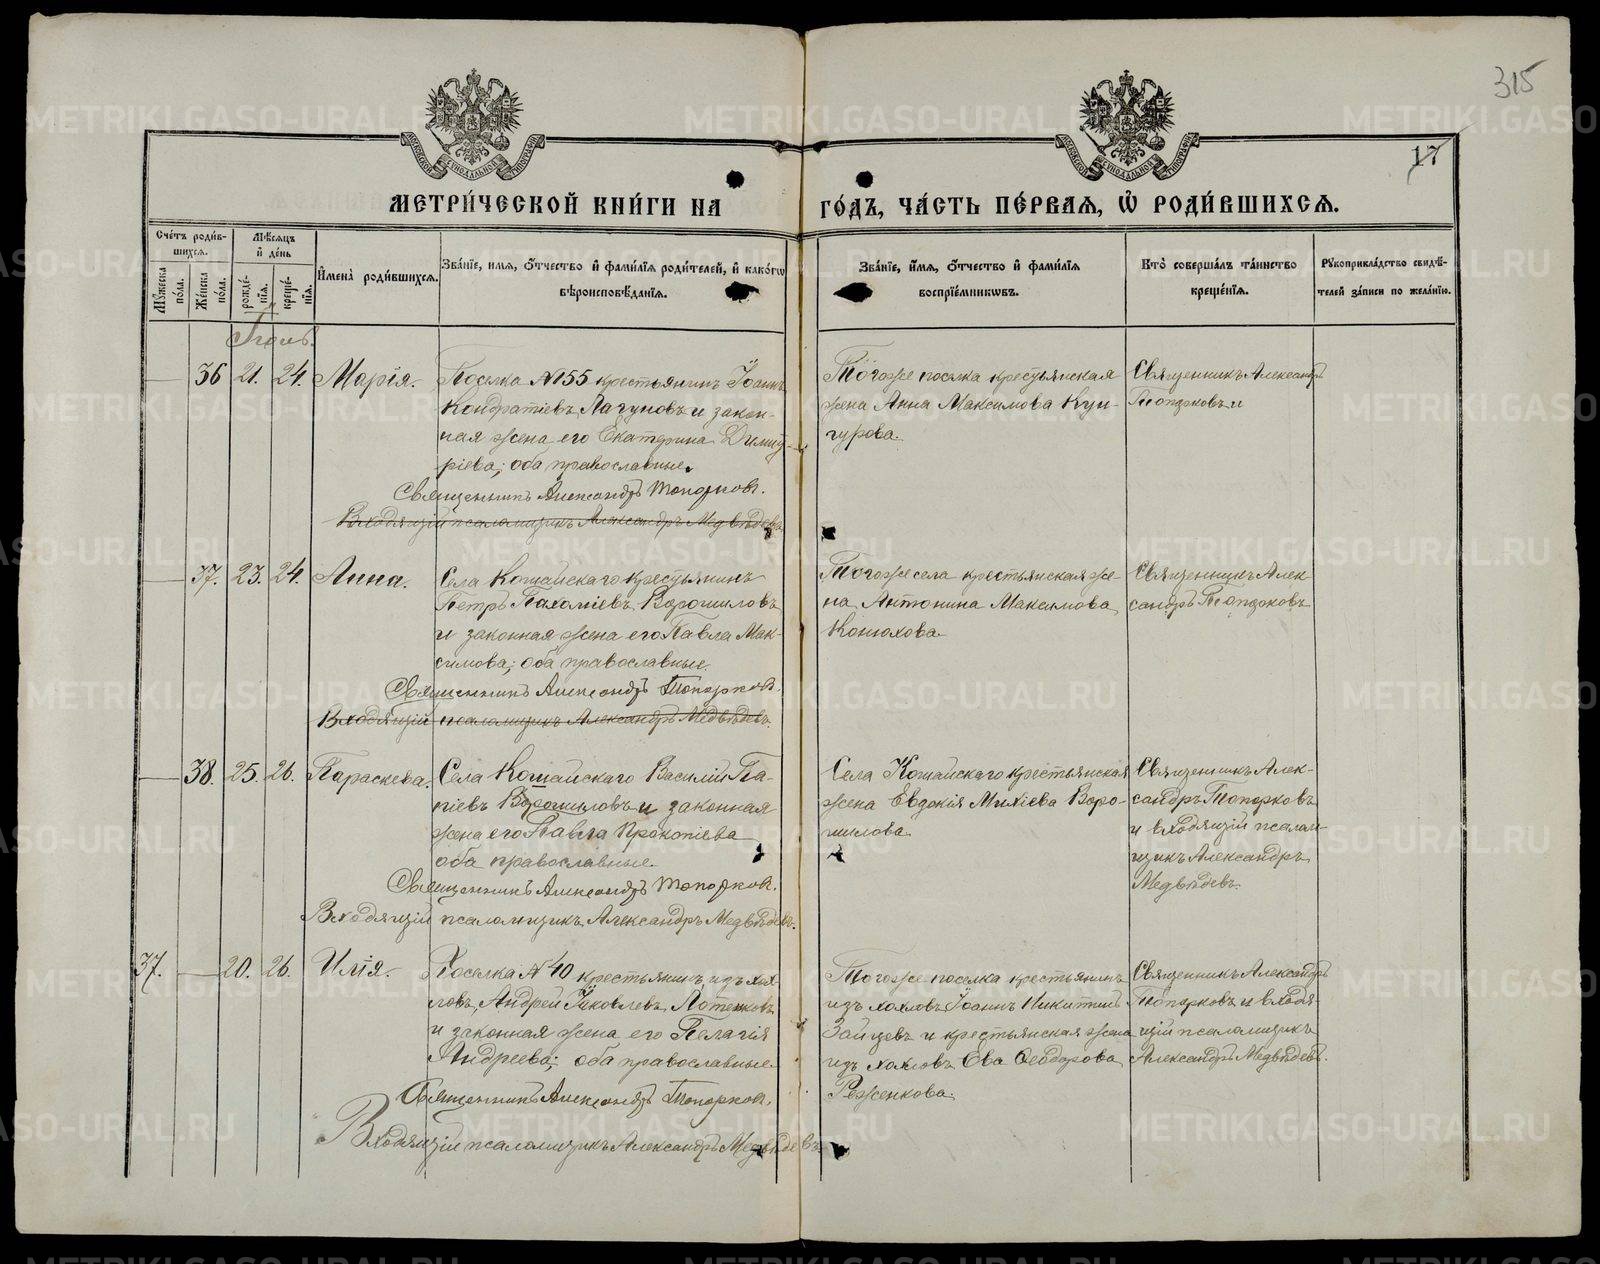 315
17
МЕТРИ́ЧЕСКОЙ КНИ́ГИ НА ГО́ДЪ, ЧА́СТЬ ПЕ́РВАЯ, Ѡ҆ РОДИ́ВШИХСЯ.
Сче́тъ роди́в-
шихся.
Мѣ́сяцъ
и҆ де́нь
Му́жеска по́ла.
Же́нска по́ла.
рожде́-
нїя.
креще́-
нїя.
И҆мена̀ роди́вшихся.
Зва́нїе, и҆мя, о҆́тчество и҆ фами́лїя роди́телей, и҆ како́гѡ
вѣроисповѣ́данїя.
Зва́нїе, и҆́мя, о҆́тчество и҆ фами́лїя
воспрїе́мникѡвъ.
Кто̀ соверша́лъ та́инство
креще́нїя.
Рꙋкоприкла́дство свидѣ́-
телей за́писи по жела́нїю.
Іюль.
36 21. 24. Марія.
Поселка №155 крестьянинъ Іоаннъ
Кондратіевъ Лагуновъ и закон-
ная жена его Екатерина Димит-
ріева; оба православные.
Священникъ Александръ Топорковъ.
Входящій псаломщикъ Александръ Медвѣдевъ
Тогоже поселка крестьянская
жена Анна Максимова Кун-
гурова.
Священникъ Александръ
Топорковъ и
37. 23. 24. Анна.
Села Кошайскаго крестьянинъ
Петръ Пахоміевъ Ворошиловъ
и законная жена его Павла Мак-
симова; оба православные.
Священникъ Александръ Топорковъ.
Входящій псаломщикъ Александръ Медвѣдевъ.
Тогоже села крестьянская же-
на Антонина Максимова
Конюхова.
Священникъ Алек-
сандръ Топорковъ
38. 25. 26. Параскева.
Села Кошайскаго Василій Па-
піевъ Ворошиловъ и законная
жена его Павла Прокопіева
оба православные.
Священникъ Александръ Топорковъ.
Входящій псаломщикъ Александръ Медвѣдевъ.
Села Кошайскаго крестьянская
жена Евдокія Михіева Воро-
шилова.
Священникъ Алек-
сандръ Топорковъ
и входящій псалом-
щикъ Александръ
Медвѣдевъ.
37. 20. 26. Илія.
Поселка №40 крестьянинъ изъ хох-
ловъ, Андрей Іаковлевъ
и законная жена его Пелагія
Андреева; оба православные.
Священникъ Александръ Топорковъ.
Входящій псаломщикъ Александръ Медвѣдевъ.
Тогоже поселка крестьянинъ
изъ хохловъ Іоаннъ Никитинъ
Зайцевъ и крестьянская жена
изъ хохловъ Ева Ѳеодорова
Реженкова.
Священникъ Александръ
Топорковъ и входя-
щій псаломщикъ
Александръ Медвѣдевъ.
METRIKI.GASO-URAL.RU